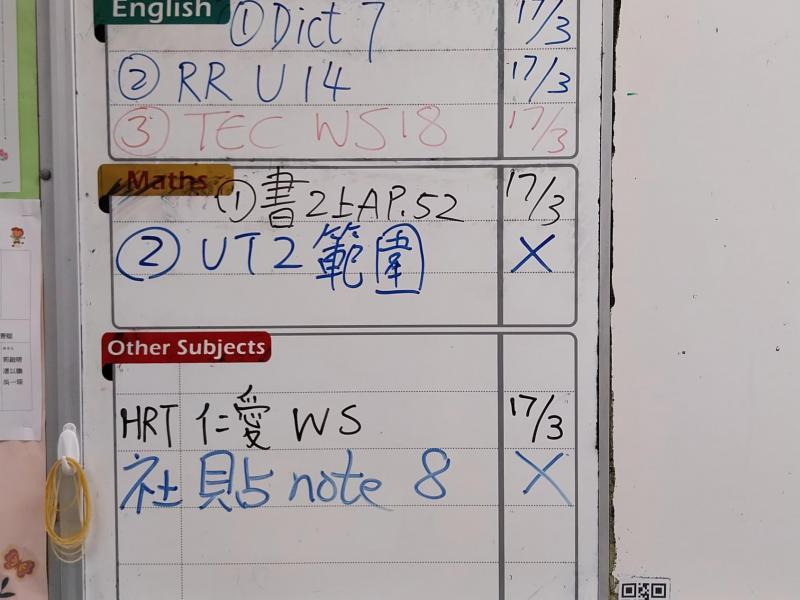 English ① Dict 7 17/3
② RR U 14 17/3
③ TEC WS 18 17/3
Maths
① 書2上A P.52 17/3
② UT2 範圍 X
Other Subjects
HRT 仁愛 WS 17/3
社 貼 note 8 X